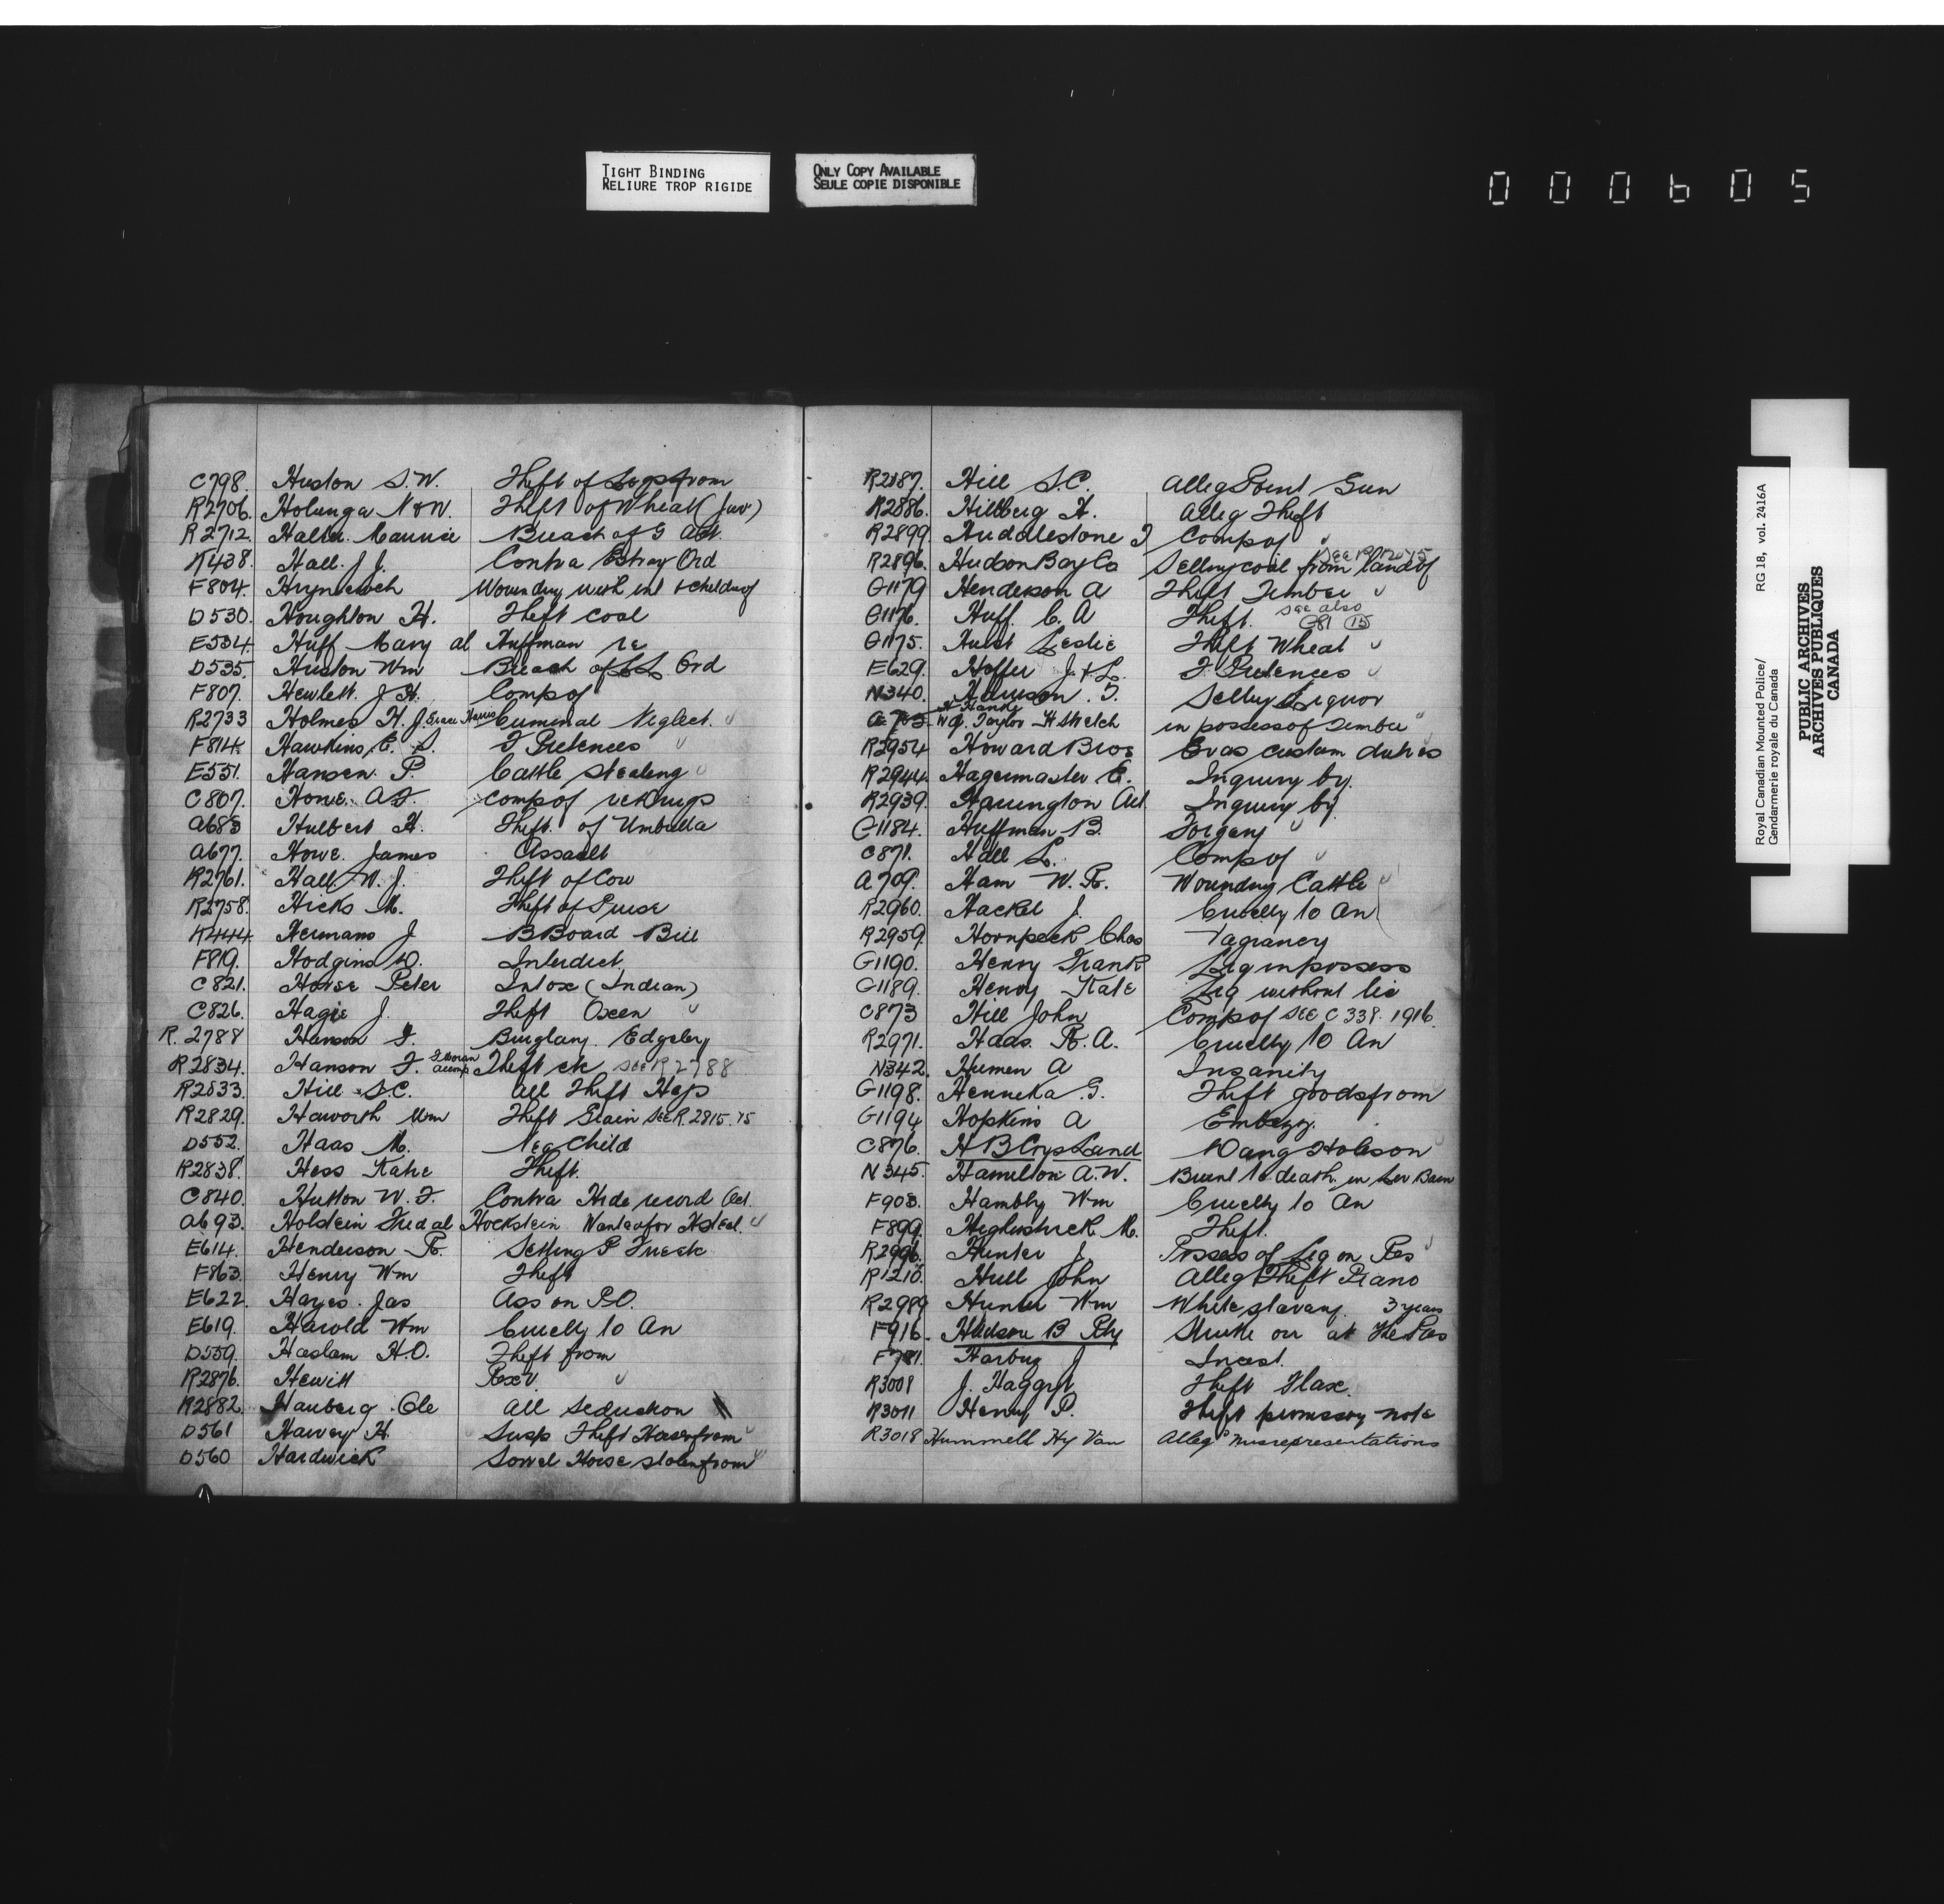 TIGHT BINDING
RELIURE TROP RIGIDE
ONLY COPY AVAILABLE
SEULE COPIE DISPONIBLE
000605
C798. Huston S.W. Theft of Logs from
R2706. Holunga N & W. Theft of Wheat (Juv)
R2712. Maurice Breach of G Act.
K438. Hall. J J. Contra Estray Ord
F804. Wounding with int & children of
D530. Houghton H. Theft coal
E534. Huff Mary al Huffman re
D535. Huston Wm Breach of L L Ord
F807. Hewlett. J H. Comp of
R2733 Holmes H. J. Grace Harris Criminal Neglect.
F814. Hawkins, E. S. F Pretences
E551. Hansen. P. Cattle Stealing
C807. Howe. A F. Comp of re Drugs
A685 Hulbert H. Theft of Umbrella
A677. Howe. James Assault
R2761. Hall. W. J. Theft of Cow
R2758. Hicks M. Theft of Purse
K444. Hermans J B Board Bill
F819. Hodgins D. Interdict.
C821. Horse Peter Intox (Indian)
C826. Hagie J. Theft Oxen
R. 2788 Hanson F. Burglary. Edgeley
R2834. Hanson F. F Moran Theft etc SEE R 2788
R2833. Hill S.C. All Theft Hogs
R2829. Haworth Wm Theft Grain SEE R. 2815. 15
D552. Haas M. Neg Child
R2838. Hess Katie Theft.
C840. Hutton W. F. Contra Hide record Act.
A693. Holstein Fred al Hockstein Wanted for H steal.
E614. Henderson R. Setting P Fires etc
F863. Henry Wm Theft
E622. Hayes. Jas Ass on P.O.
E619. Harold Wm Cruelty to An
D559. Haslam H.O. Theft from
R2876. Hewitt Rex v
R2882. Hauberg. Ole All Seduction
D561 Harvey H. Susp Theft Horse from
D560 Hardwick Sorrel Horse stolen from
R2887. Hill S.C. Alleg Point Gun
R2886. Hillberg H. Alleg Theft
R2899. Huddlestone J Comp of
R2896. Hudson Bay Co Selling coal from land of
G1179 Henderson A Theft Timber
G1176. Huff. C. A Theft. see also G81 (15)
G1175. Hurst Leslie Theft Wheat
E629. Hoffer J. & L. F Pretences
N340. Harrison. T. Selling Liquor
A 703 H Hande W J. Taylor H Stretch in possess of Timber
R2954 Howard Bros Evas custom duties
R2944. Hagermaster E. Inquiry by.
R2939. Harrington Art Inquiry by.
G1184. Huffman B. Forgery
C871. Hall L. Comp of
A709. Ham W. R. Wounding Cattle
R2960. Hackel J. Cruelty to An
R2959. Hornpeck Chas Vagrancy
G1190. Henry Frank Liq in possess
G1189. Henry Kate Liq without lic
C873 Hill John Comp of SEE C 338. 1916.
R2971. Haas. R. A. Cruelty to An
N342. Humen A Insanity
G1198. Henneka G. Theft goods from
G1194 Hopkins A Embezz.
C876. H B Crys Land Dang Hobson
N345. Hamilton A.W. Burnt to death in Liv Barn
F908. Hambly Wm Cruelty to An
F899. M. Theft.
R2996. Hunter J. Possess of Liq on Res
R1210. Hull John Alleg Theft Piano
R2989 Hunter Wm White slavery. 3 years
F916. Hudson B Rly Strike on at The Pas
F781. J Incest.
R3009 J. Haggart Theft Flax.
R3011 Henry P. Theft promissory note
R3018 Hummell Hy Van Alleg misrepresentations
Royal Canadian Mounted Police/ RG 18, vol. 2416A
Gendarmerie royale du Canada
PUBLIC ARCHIVES
ARCHIVES PUBLIQUES
CANADA